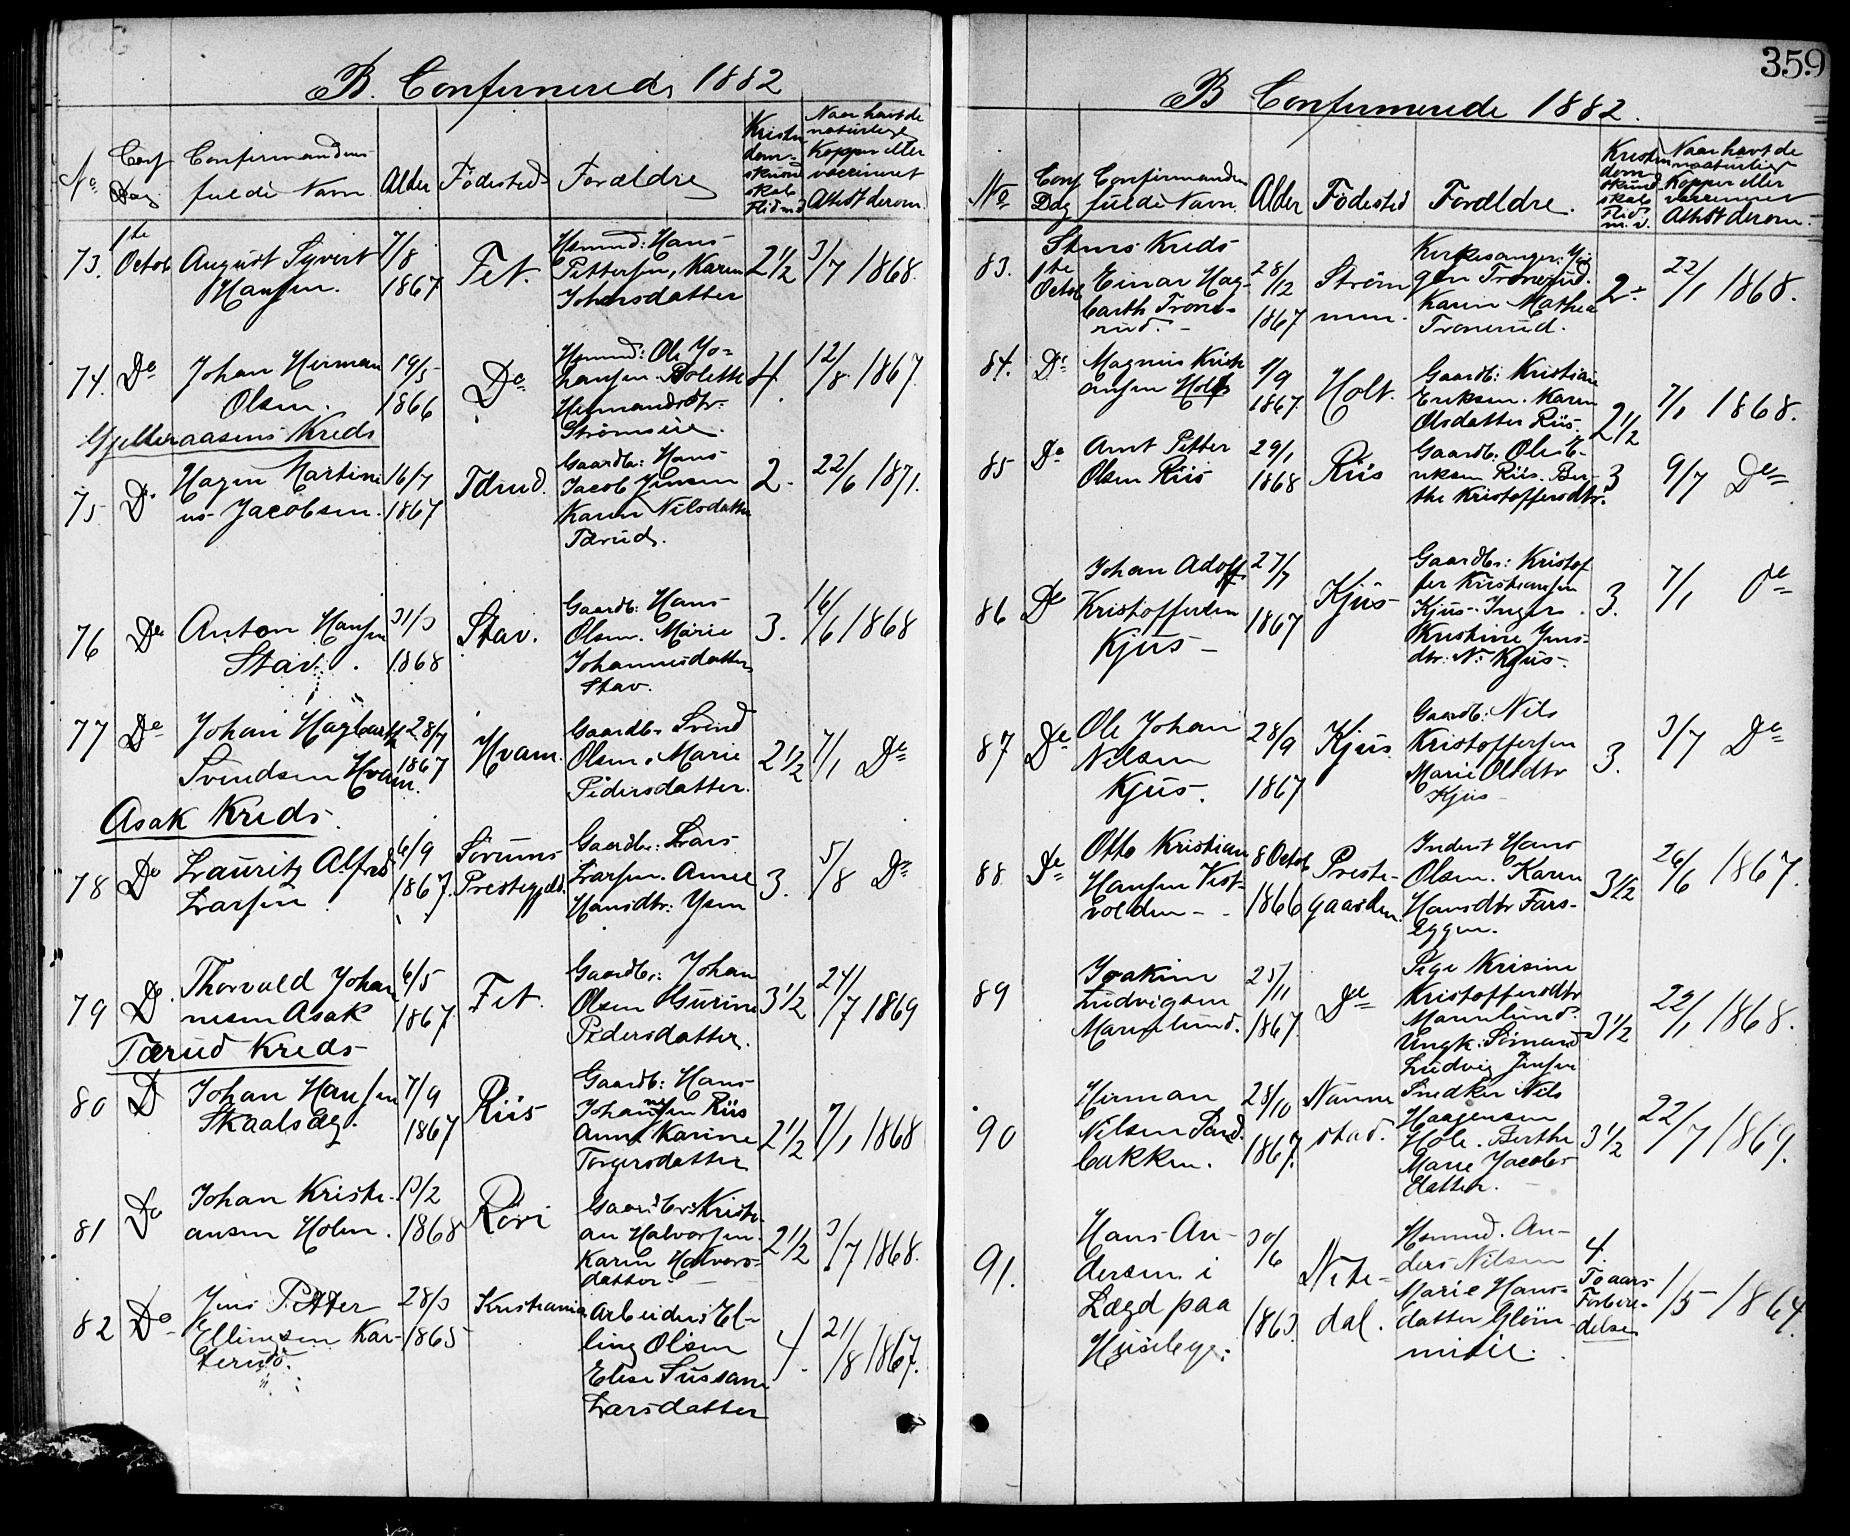 B. Confirmerede 1882
No. Conf Dag Confirmandens fulde Navn Alder Födested Forældre Kristendomskundskab Flid m.v. Naar havt de naturlige Kopper eller vaccineret Attest derom.
73. 1te Octob August Syvert Hansen. 7/8 1867 Fet. Hmand: Hans Pettersen, Karen Johansdatter 2 1/2 3/7 1868.
74. Do Johan Herman Olsen. 19/5 1866 Do Hmand: Ole Johansen Bolette Hermandsdtr. Strömseie. 4. 12/8 1867.
Gjelleraasens Kreds
75 Do Hagen Martinius Jacobsen. 16/7 1867 Tærud. Gaardbr: Hans Jacob Jensen Karen Nilsdatter Tærud. 2. 22/6 1871.
76 Do Anton Hansen Stav. 31/3 1868 Stav. Gaardb: Hans Olsen. Marie Johannesdatter Stav. 3. 16/6 1868
77 Do Johan Hagbarth Svendsen Hvam. 28/7 1867 Hvam. Gaardbr Svend Olsen. Marie Pedersdatter. 2 1/2 7/1 Do
Asak Kreds.
78 Do Lauritz Alfred Larsen 6/9 1867. Sørums Prestegjeld. Gaardbr: Lars Larsen. Anne Hansdtr: 3. 5/8 Do
79 Do. Thorvald Johannesen Asak 6/5 1867 Fet. Gaardbr: Johan Olsen Gurine Pedersdatter. 3 1/2 24/7 1869
Tærud Kreds
80 D Johan Hansen Skaalsæg. 7/9 1867 Riis Gaardb: Hans Johannesen Riis Anne Karine Torgersdatter 2 1/2 7/1 1868
81 Do Johan Kristiansen Holm. 13/2 1868 Rövi Gaardbr: Kristian Halvorsen. Karen Halvorsdatter 2 1/2 3/7 1868.
82 Do Jens Petter Ellingsen Karterud. 28/3 1865 Kristiania Arbeider Elling Olsen Elese Sussane Larsdatter 4. 21/8 1867.
359
B Confirmerede 1882.
No Conf Dag Confirmanden fulde Navn. Alder Födested Forældre. Kristendomskundskab Flid m.v. Naar havt de naaturlige Kopper eller vaccineret Attest derom.
Stens Kreds
83. 1te Octob Einar Hagbarth Tronerud. 28/12 1867 Strømmen. Kirkesanger: Tronerud. Karen Mathea Tronerud. 2÷ 22/1 1868.
84. Do Magnus Kristiansen Holt 1/9 1867. Holt. Gaardb: Kristian Eriksen. Karen Olsdatter Riis. 2 1/2 7/1 1868.
85 Do Arnt Petter Olsen Riis 29/1 1868 Riis Gaardb: Ole Eriksen Riis. Berthe Kristoffersdtr. 3 9/7 Do
86 Do Johan Adolf Kristoffersen Kjus 27/7 1867 Kjus Gaardbr: Kristoffer Kristiansen Kjus. Inger Kristine Jensdtr: N: Kjus. 3. 7/1 Do
87 Do Ole Johan Nilsen Kjus. 28/9 1867 Kjus Gaardb: Nils Kristoffersen Marie Olsdtr Kjus 3. 3/7 Do
88 Do Otto Kristian Hansen Vestvolden 8 Octob 1866 Prestegaarden. Inderst Hans Olsen. Karen Hansdtr Farseggen. 3 1/2 26/6 1867.
89 Joakim Ludvigsen Marielund. 25/11 1867. Do Pige Krisine Kristoffersdtr Marielund. Ungk: Sömand Ludvig Jensen 3 1/2 22/1 1868.
90 Herman Nilsen Sandbakken. 28/10 1867. Nannestad. Snedker Nils Haagensen Hole. Berthe Marie Jacobsdatter. 3 1/2 22/7 1869.
91. Hans Andersen i Lægd paa Huseby. 30/6 1863. Nitedal. Hmand. Anders Nilsen Marie Hansdatter Glömmieie. 4. To aars Forberedelse 1/5 1864.